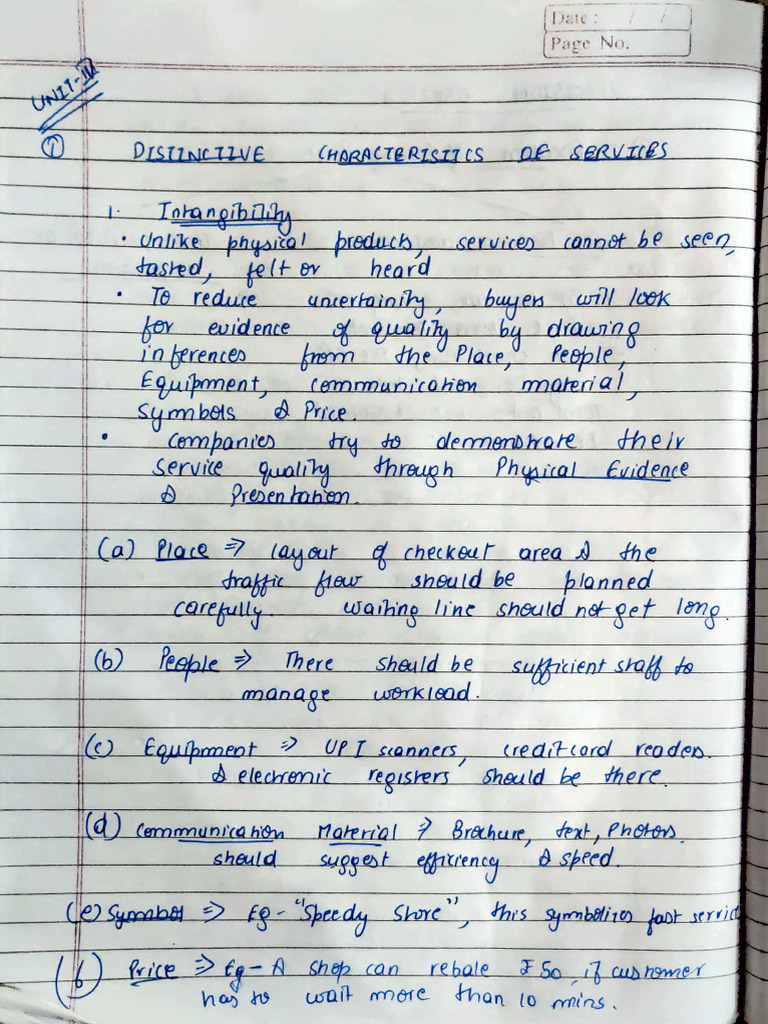 Date : / /
Page No.
UNIT-IV
① DISTINCTIVE CHARACTERISITICS OF SERVICES
1. Intangibility
• Unlike physical products, services cannot be seen,
tasted, felt or heard
• To reduce uncertainity, buyers will look
for evidence of quality by drawing
inferences from the Place, People,
Equipment, communication material,
Symbols & Price.
• Companies try to demonstrate their
service quality through Physical Evidence
& Presentation.
(a) Place ⇒ layout of checkout area & the
traffic flow should be planned
carefully. waiting line should not get long.
(b) People ⇒ There should be sufficient staff to
manage workload.
(c) Equipment ⇒ UPI scanners, credit card readers
& electronic registers should be there.
(d) Communication Material ⇒ Brochure, text, Photos.
should suggest efficiency & speed.
(e) Symobol ⇒ Eg- "Speedy Store", this symbolizes fast service
(f) Price ⇒ Eg- A shop can rebate ₹50, if customer
has to wait more than 10 mins.